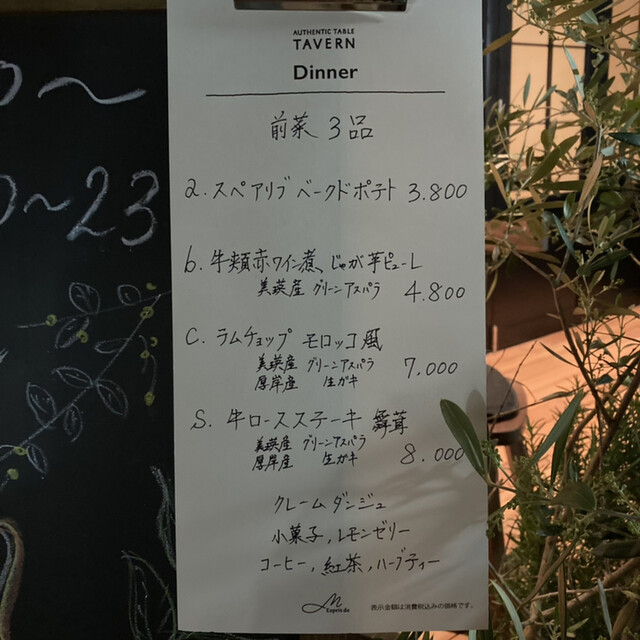 AUTHENTIC TABLE
TAVERN
Dinner
前菜 3品
a. スペアリブ ベークドポテト 3.800
b. 牛頬赤ワイン煮、じゃが芋ピューレ
美瑛産 グリーンアスパラ 4.800
C. ラムチョップ モロッコ風
美瑛産 グリーンアスパラ
厚岸産 生ガキ 7.000
S. 牛ロースステーキ
美瑛産 グリーンアスパラ
厚岸産 生ガキ 8.000
クレームダンジュ
小菓子, レモンゼリー
コーヒー, 紅茶, ハーブティー
表示金額は消費税込みの価格です。
~
~23